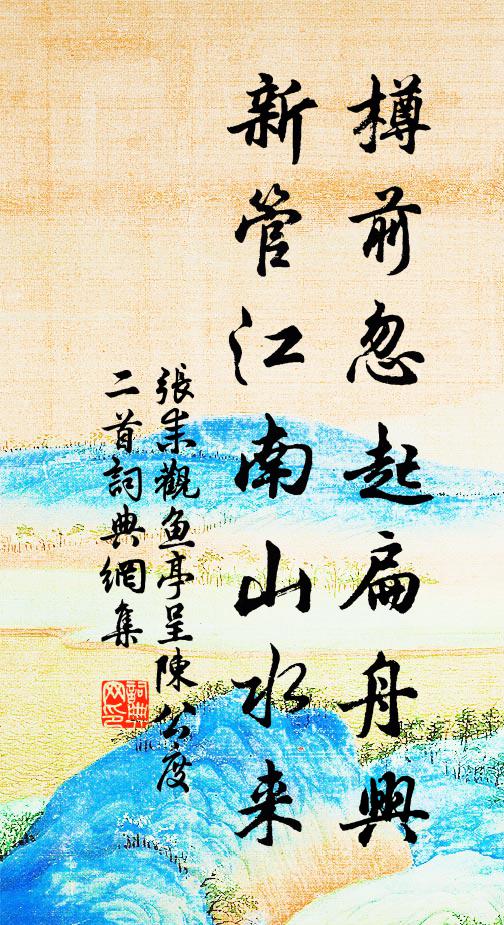 樽前忽起扁舟興
新管江南山水来
張耒觀鱼亭呈陳公度
二首詞典網集